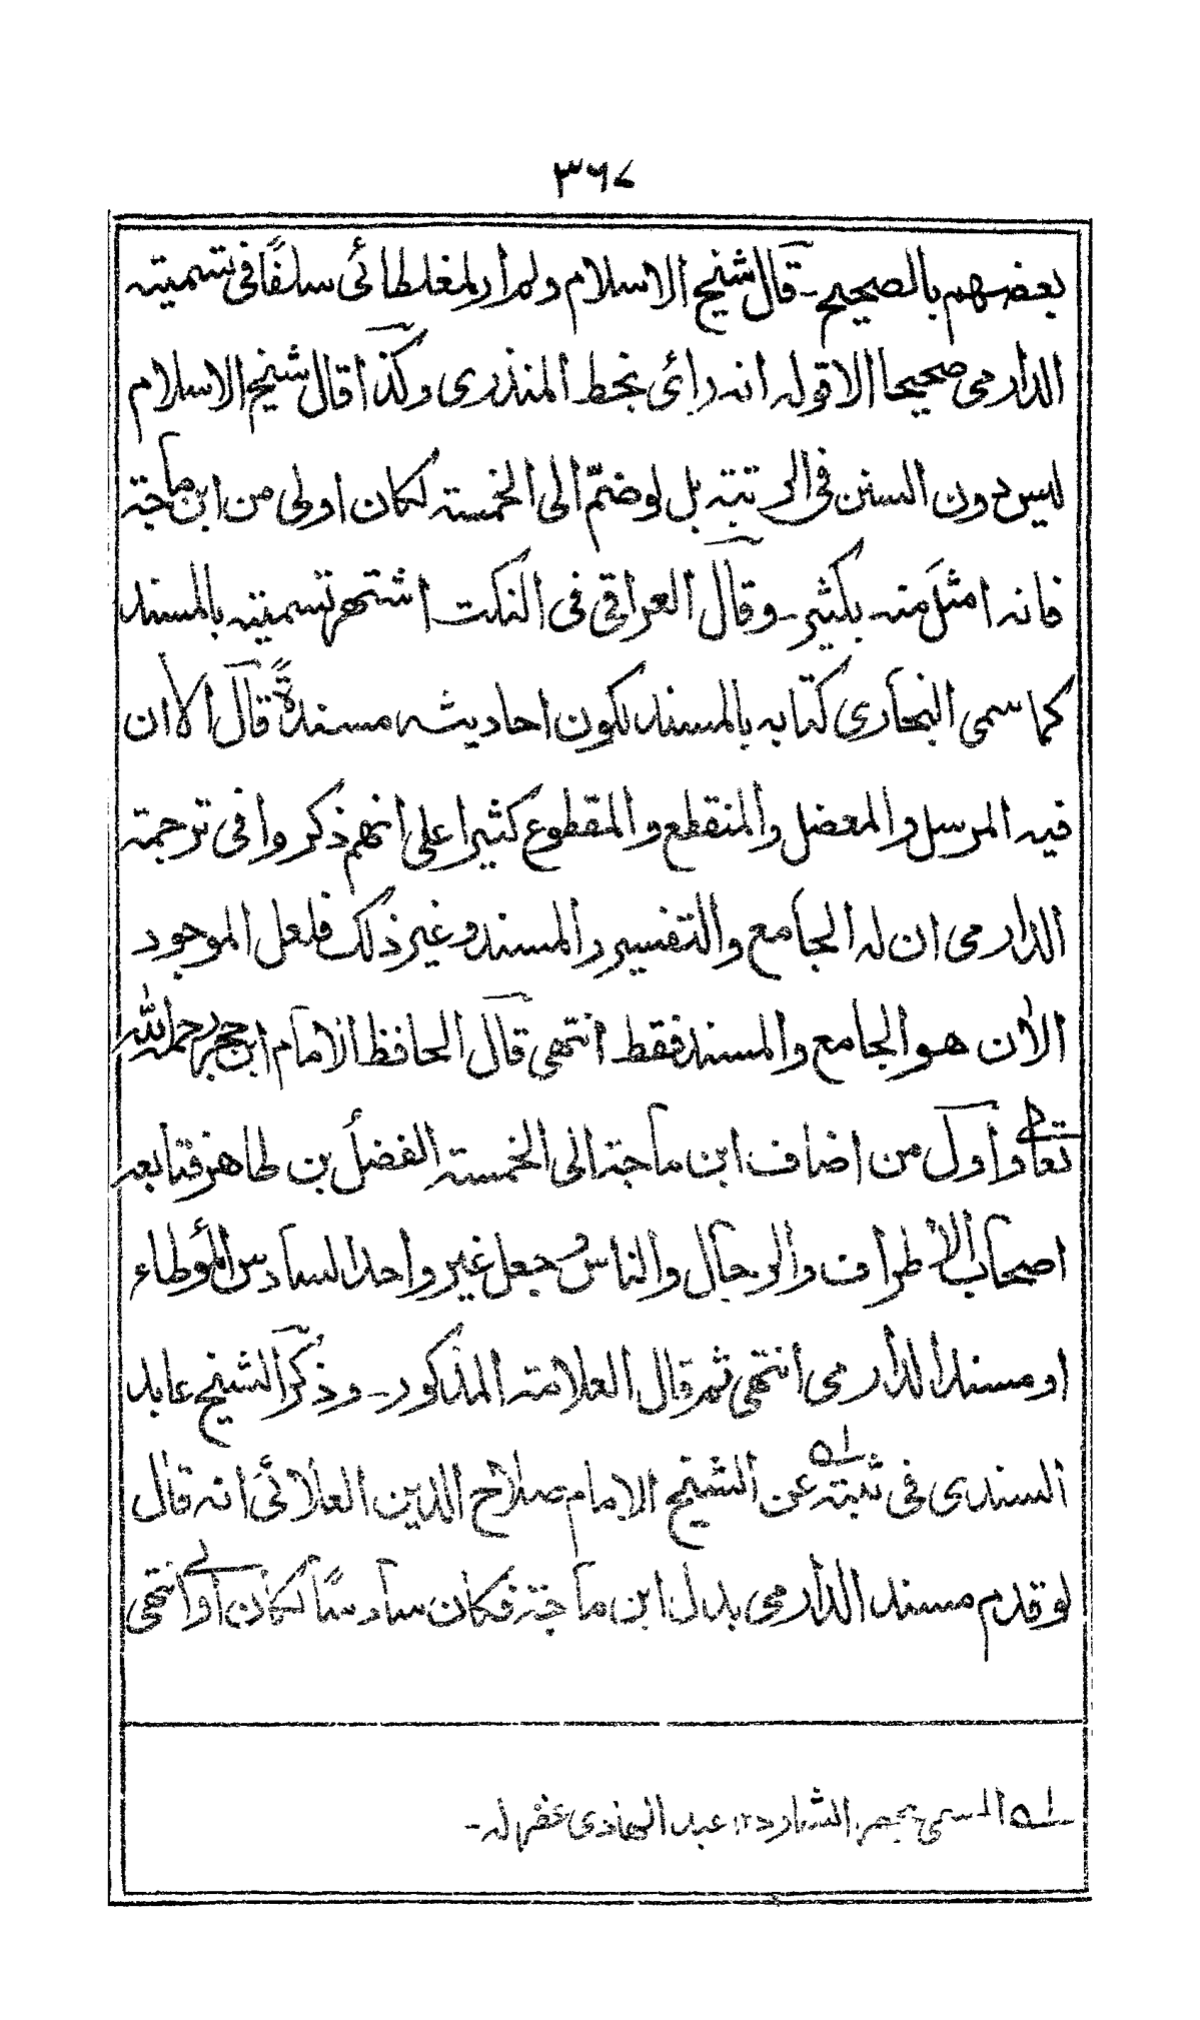 ٣٦٧
بعضهم بالصحيح - قال شيخ الاسلام ولم ار لمغلطائى سلفًا فى تسميته
الدارمى صحيحا الا قوله انه رائ بخط المنذرى وكذا قال شيخ الاسلام
ليس دون السنن فى الرتبته بل لو ضمّ الى الخمسته لكان اولى من ابن ماجته
فانه امثل منه بكثير - وقال العراقى فى النكت اشتهر تسميته بالمسند
كما سمى البخارى كتابه بالمسند لكون احاديثه مسندةً قال الا ان
فيه المرسل والمعضل والمنقطع والمقطوع كثيرا على انهم ذكروا فى ترجمته
الدارمى ان له الجامع والتفسير والمسند وغير ذلك فلعل الموجود
الاٰن هو الجامع والمسند فقط انتهى قال الحافظ الامام ابن حجر رحمه الله
تعالى واول من اضاف ابن ماجته الى الخمسته الفضل بن طاهر فتابعه
اصحاب الاطراف والرجال والناس وجعل غير واحد السادس المؤطاء
او مسند الدارمى انتهى ثم قال العلامته المذكور - وذكر الشيخ عابد
السندى فى ثبته له عن الشيخ الامام صلاح الدين العلائى انه قال
لو قدم مسند الدارمى بدل ابن ماجته فكان سادسًا لكان اولى انتهى
له المسمى بحصر الشارد ١٢ عبد الهادى غفر له -